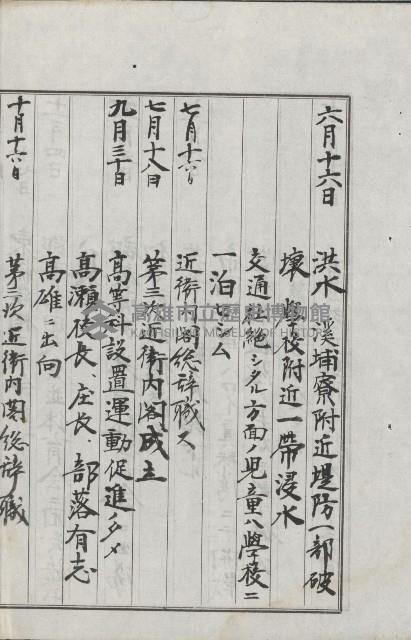 六月十六日
洪水 溪埔寮附近堤防一部破
壞 學校附近一帶浸水
交通杜絕シタル方面ノ児童ハ學校ニ
一泊セシム
七月十六日
近衛内閣総辞職ス
七月十八日
第三次近衛内閣成立
九月三十日
高等科設置運動促進ノタメ
高瀬校長、庄長、部落有志
高雄ニ出向
十月十六日
第三次近衛内閣総辞職
高雄市立歷史博物館
KAOHSIUNG MUSEUM OF HISTORY